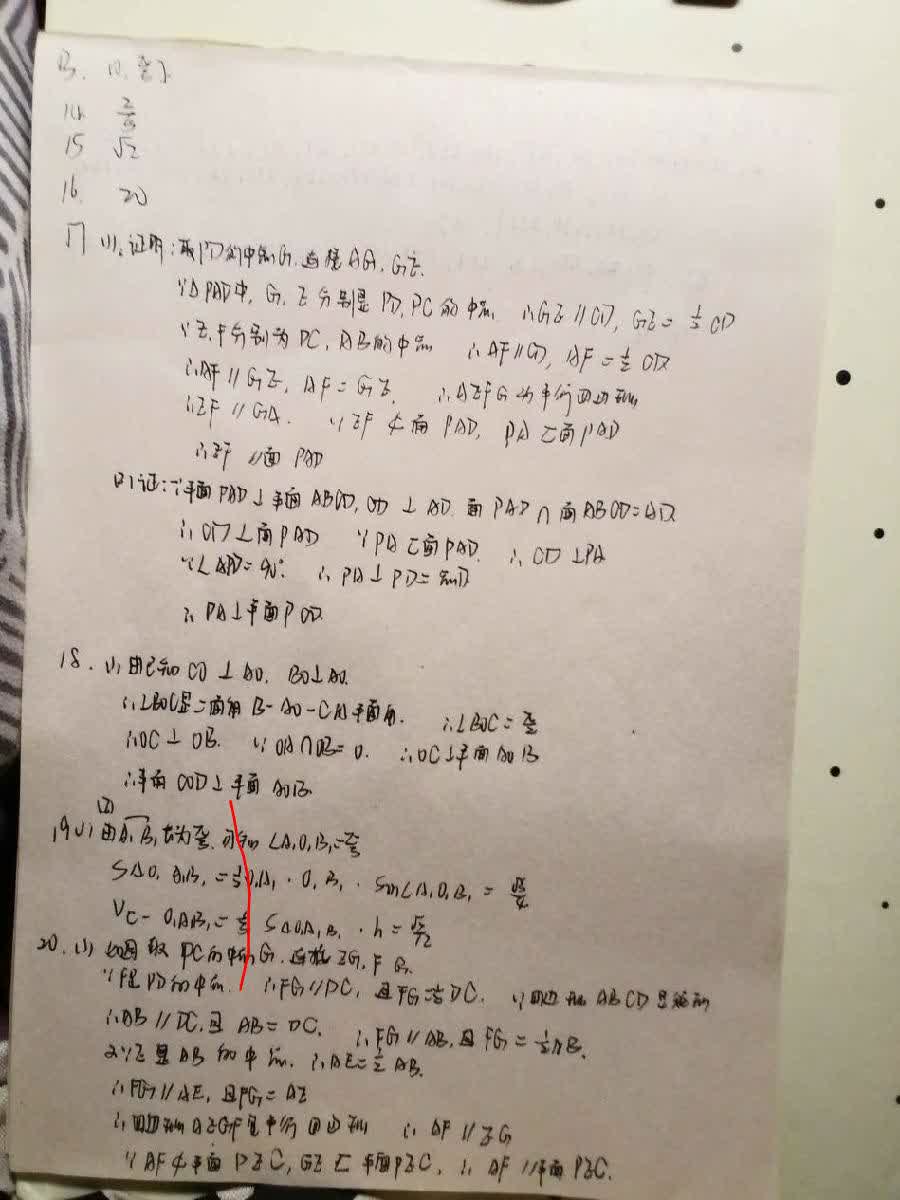 14. 
15 √2
16. 20
17 (1). 证明:取PD的中点G,连接AG,GE.
∵△PAD中,G、E分别是PD,PC的中点 ∴GE∥CD,GE=½CD
∵E,F分别为DC,AB的中点 ∴AF∥CD,AF=½CD
∴AF∥GE,AF=GE. ∴AEFG为平行四边形
∴EF∥GA. ∵EF⊄面PAD,PA⊂面PAD
∴EF∥面PAD
(2)证:∵平面PAD⊥平面ABCD,CD⊥AD 面PAD∩面ABCD=AD
∴CD⊥面PAD ∵PA⊂面PAD. ∴CD⊥PA
∵∠APD=90° ∴PA⊥PD
∴PA⊥平面PCD
18. (1)由已知CO⊥AO,BO⊥AO.
∴∠BOC是二面角B-AO-C的平面角. ∴∠BOC=
∴OC⊥OB. ∵OA∩OB=O. ∴OC⊥平面AOB
∴平面COD⊥平面AOB
(2)
19(1)由A₁B₁长为 可知∠A₁O₁B₁=
S△O₁A₁B₁= O₁A₁·O₁B₁·sin∠A₁O₁B₁=
VC-O₁A₁B₁= S△O₁A₁B₁·h=
20.(1)如图取PC的中点G.连接EG,FG.
∵F是PD的中点. ∴FG∥DC,且FG=½DC. ∵四边形ABCD是
∴AB∥DC,且AB=DC. ∴FG∥AB,且FG=½AB.
又∵E是AB的中点. ∴AE=½AB.
∴FG∥AE,且FG=AE
∴四边形AEGF是平行四边形 ∴AF∥EG
∵AF⊄平面PEC,GE⊂平面PEC,∴AF∥平面PEC.